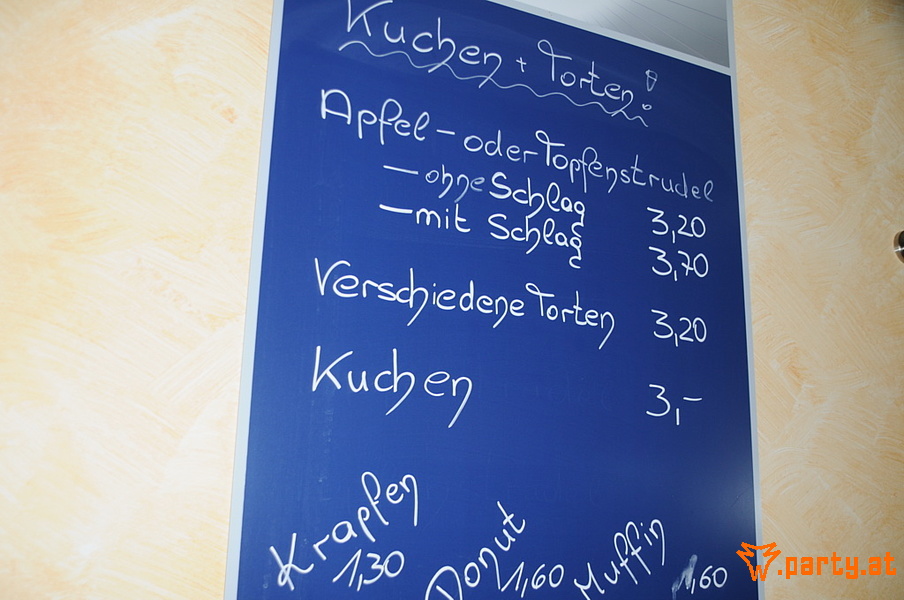 Kuchen + Torten!
Apfel- oder Topfenstrudel
- ohne Schlag 3,20
- mit Schlag 3,70
Verschiedene Torten 3,20
Kuchen 3,-
Krapfen 1,30
Donut 1,60
Muffin 1,60
W.party.at